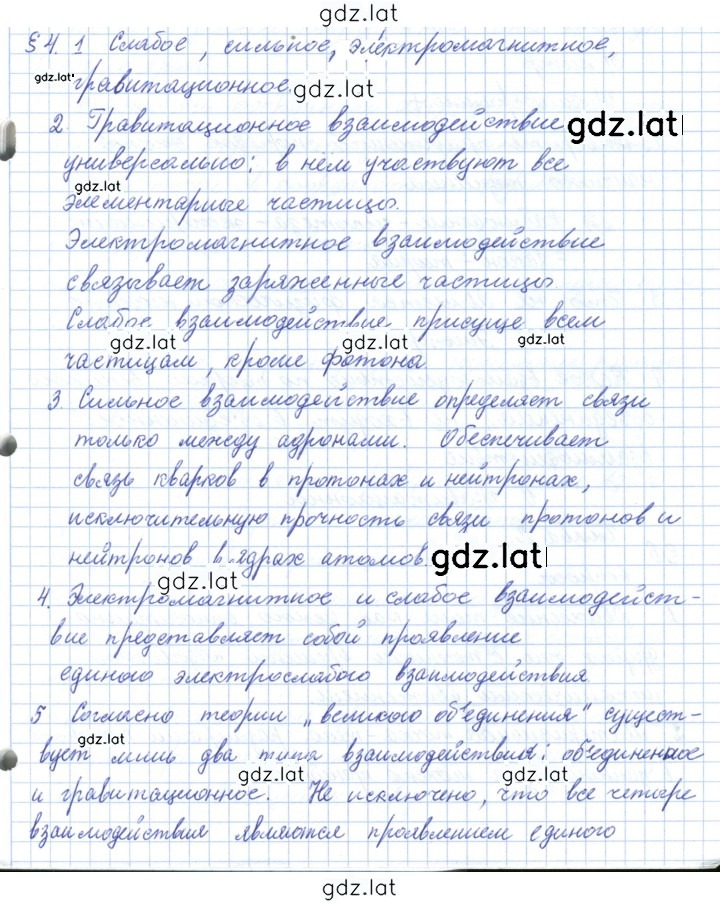 gdz.lat
§4. 1 Слабое, сильное, электромагнитное,
gdz.lat гравитационное. gdz.lat
2 Гравитационное взаимодействие gdz.lat
универсально: в нём участвуют все
gdz.lat
элементарные частицы.
Электромагнитное взаимодействие
связывает заряженные частицы
Слабое взаимодействие присуще всем
gdz.lat gdz.lat gdz.lat
частицам, кроме фотона
3. Сильное взаимодействие определяет связи
только между адронами. Обеспечивает
связь кварков в протонах и нейтронах,
исключительную прочность связи протонов и
нейтронов в ядрах атомов gdz.lat
gdz.lat
4. Электромагнитное и слабое взаимодейст-
вие представляет собой проявление
единого электрослабого взаимодействия
5 Согласно теории "великого объединения" сущест-
gdz.lat
вует лишь два типа взаимодействия: объединенное
gdz.lat gdz.lat
и гравитационное. Не исключено, что все четыре
взаимодействия являются проявлением единого
gdz.lat